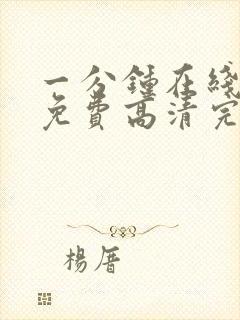 一分鍾在綫
免費高清完
楊厝